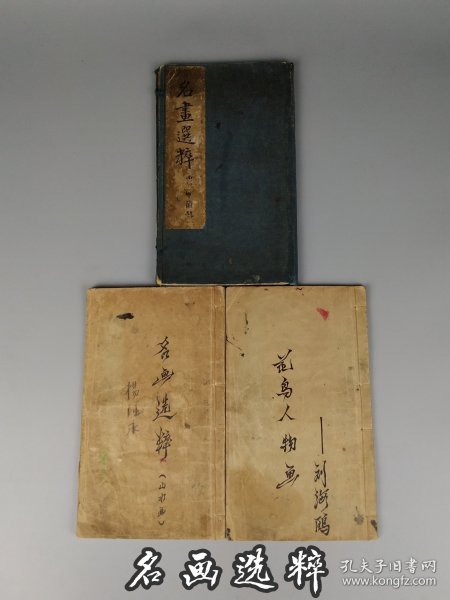 名畫選粹
名画选粹
(山水画)
花鸟人物画
名画选粹
孔夫子旧书网
www.kongfz.com